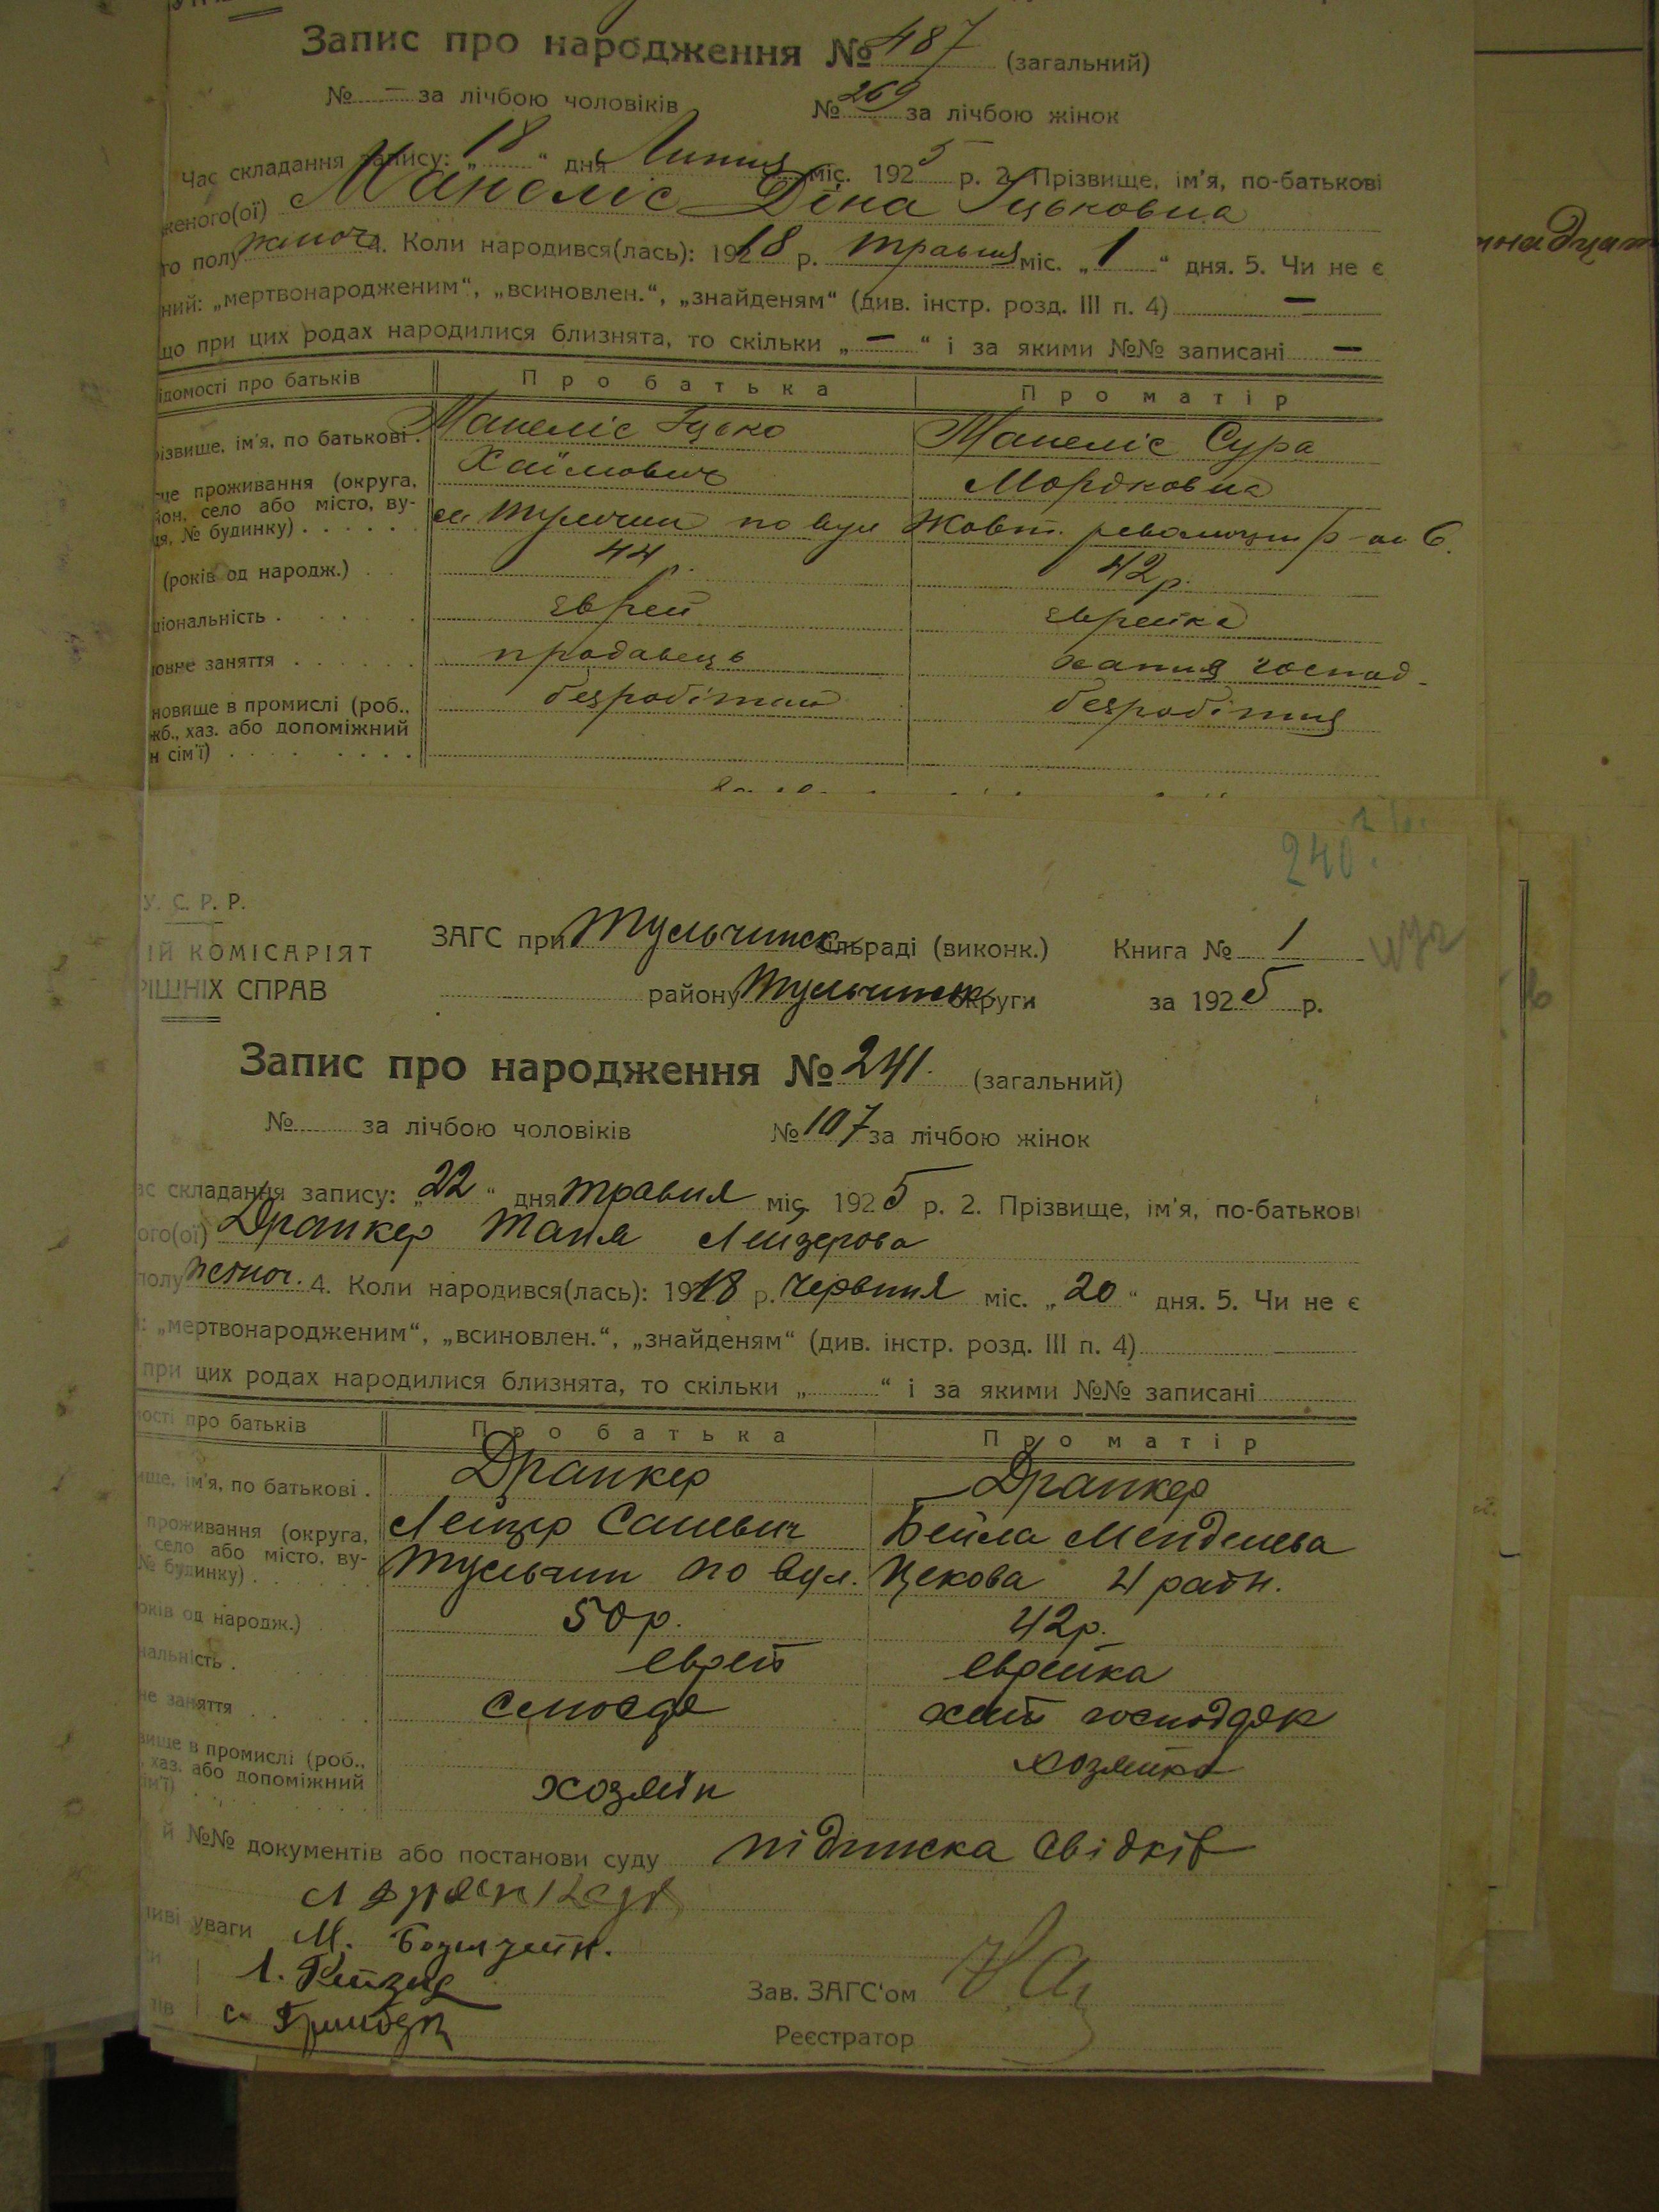 Запис про народження № 487 (загальний)
№ — за лічбою чоловіків № 269 за лічбою жінок
Час складання запису: „18“ дня Липня міс. 1925 р. 2. Прізвище, ім'я, по-батькові
женого(ої) Манеліс Діна Іцьковна
го полу жіноч. 4. Коли народився(лась): 1918 р. травня міс. „1“ дня. 5. Чи не є
ний: „мертвонародженим“, „всиновлен.“, „знайденям“ (див. інстр. розд. III п. 4) —
що при цих родах народилися близнята, то скільки „—“ і за якими №№ записані —
ідомості про батьків Про батька Про матір
різвище, ім'я, по батькові . Манеліс Іцько Манеліс Сура
Хаїмович Мордковна
це проживання (округа,
йон, село або місто, ву-
ця, № будинку) . . . . . м Тульчин по вул Жовт. революции 6.
(років од народж.) . . 44 р. 42 р.
ціональність . . . . . єврей єврейка
ловне заняття . . . . . . продавець хатня господ.
новище в промислі (роб., безробітний безробітня
жб., хаз. або допоміжний
н сім'ї) . . . . . . . .
240.
У. С. Р. Р.
ІЙ КОМІСАРІЯТ
РІШНІХ СПРАВ
ЗАГС при Тульчинск сільраді (виконк.) Книга № 1
району Тульчинськ округи за 1925 р.
Запис про народження № 241. (загальний)
№ за лічбою чоловіків № 107 за лічбою жінок
ас складання запису: „22“ дня травня міс. 1925 р. 2. Прізвище, ім'я, по-батькові
ого(ої) Драпкер Таня Лейзерова
полу жіноч. 4. Коли народився(лась): 1918 р. червння міс. „20“ дня. 5. Чи не є
й: „мертвонародженим“, „всиновлен.“, „знайденям“ (див. інстр. розд. III п. 4)
при цих родах народилися близнята, то скільки „ “ і за якими №№ записані
мості про батьків Про батька Про матір
ище, ім'я, по батькові . Драпкер Драпкер
проживання (округа, Лейзер Саневич Бейла Менделева
село або місто, ву-
№ будинку) . Тульчин по вул. Цекова 4 райн.
оків од народж.) 50 р. 42 р.
нальність . еврей еврейка
не заняття . . хат господар
вище в промислі (роб., хозяйка
, хаз. або допоміжний
ім'ї) . . . хозяїн
й №№ документів або постанови суду підписка свідків
ливі уваги М.
Л.
с.
Зав. ЗАГС'ом
Реєстратор